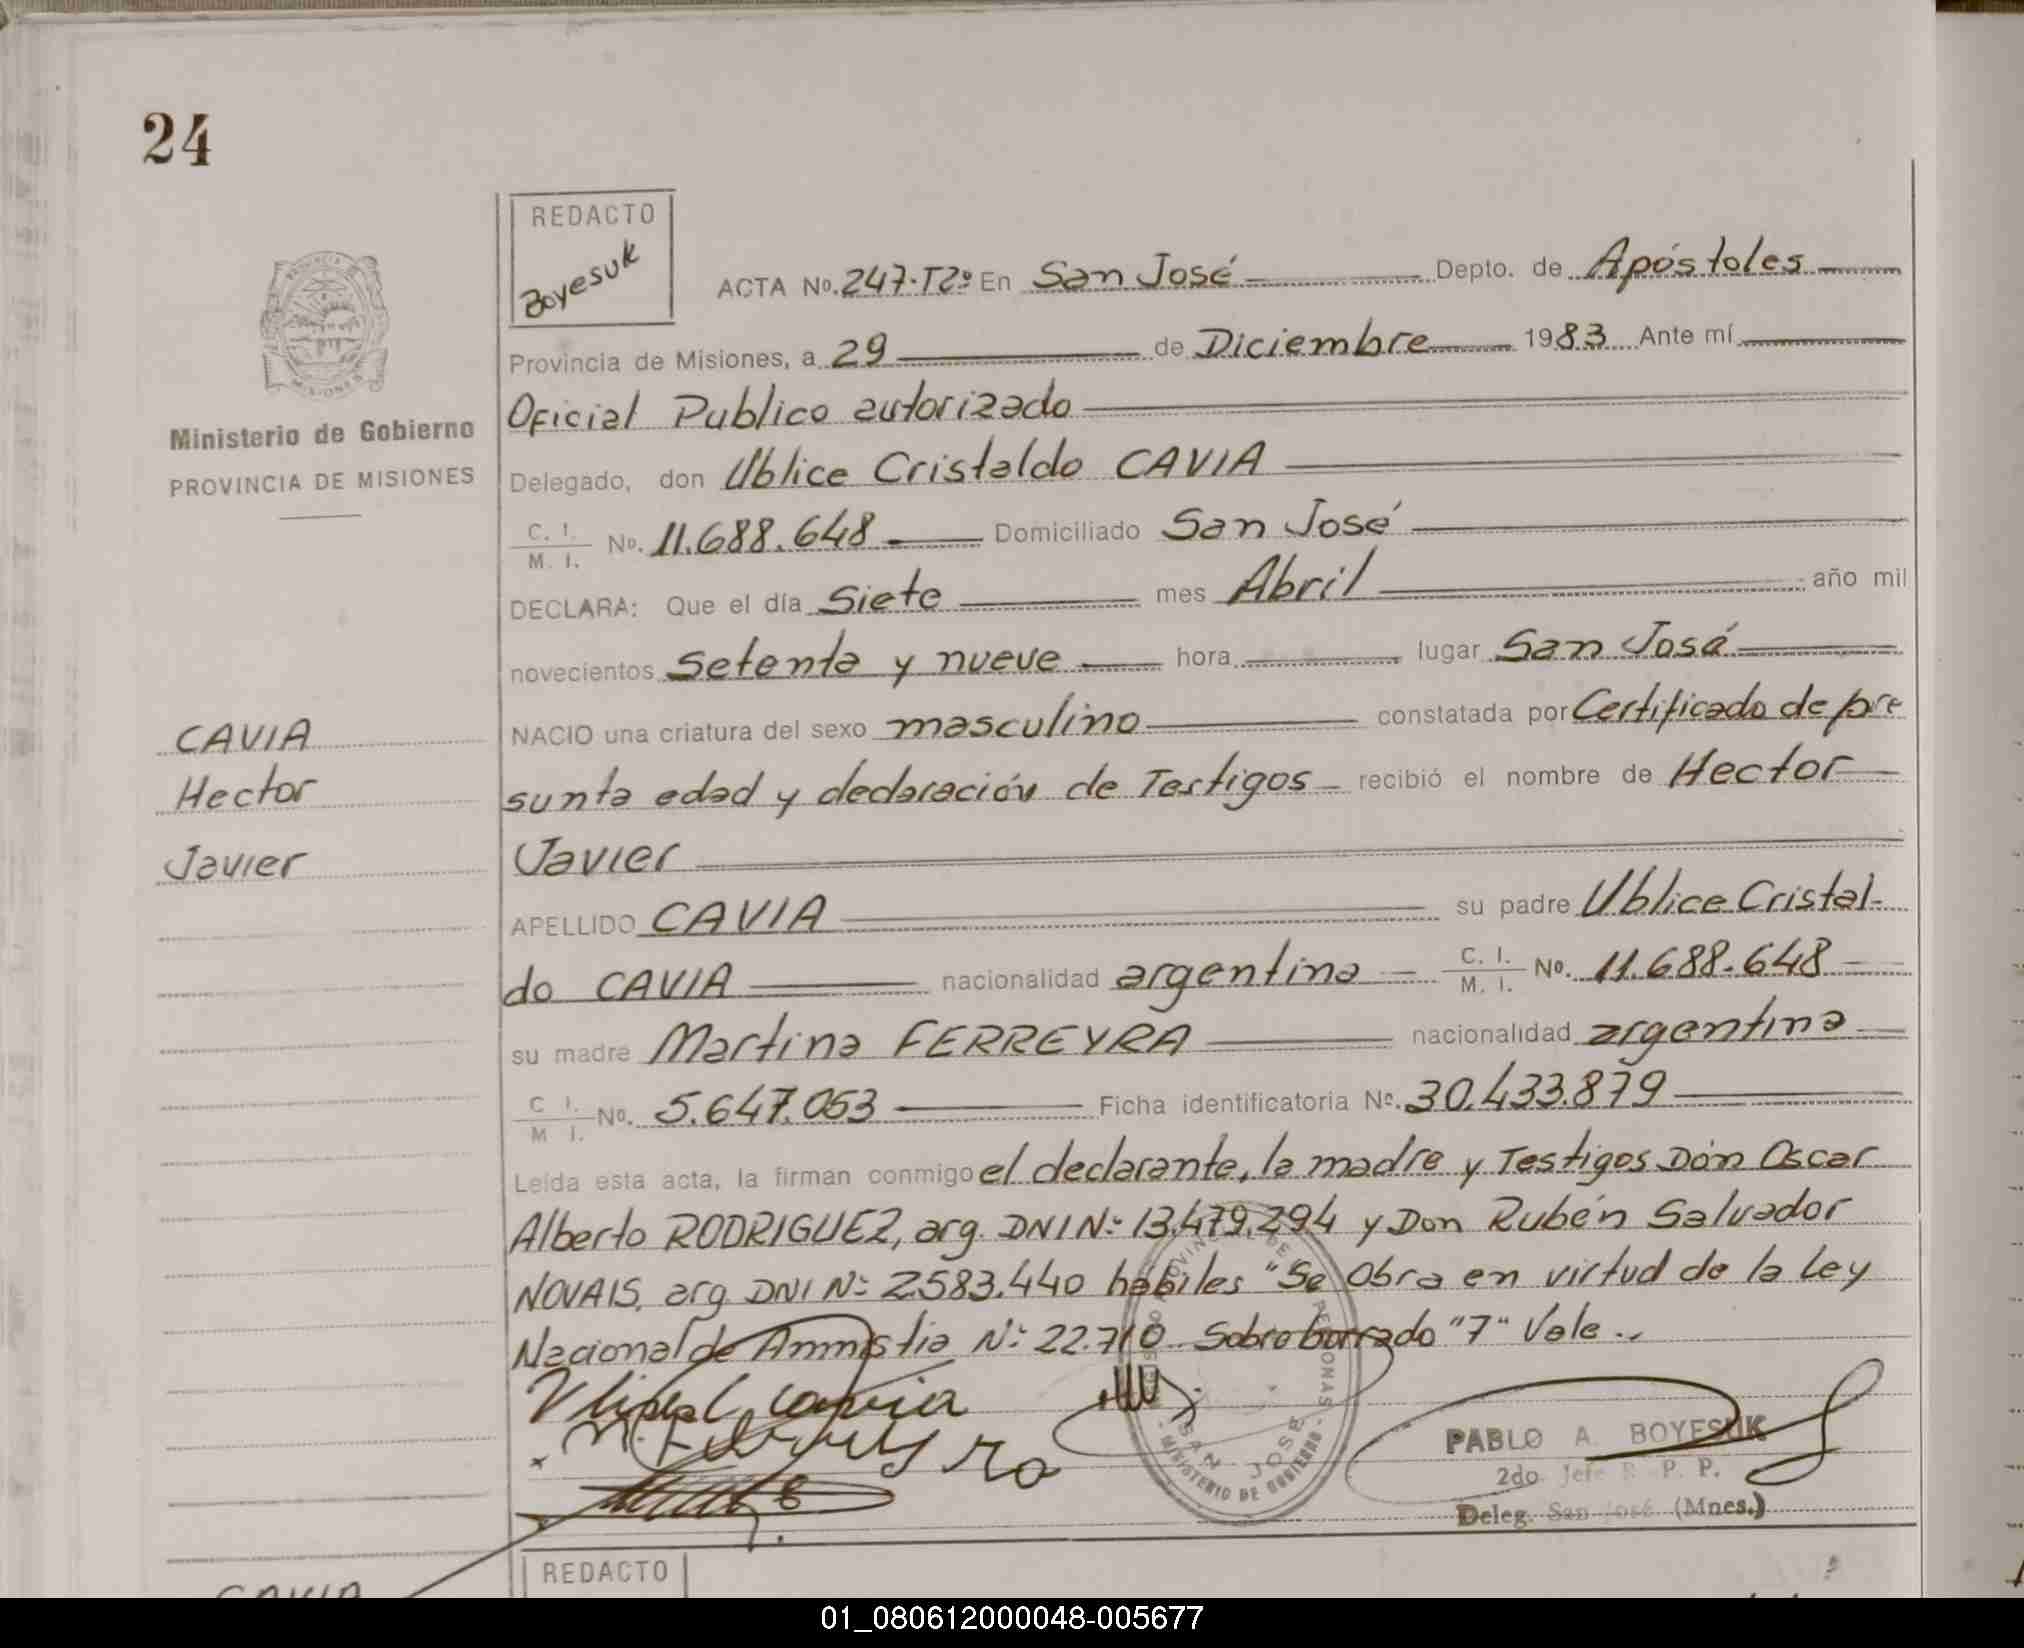 24
REDACTO
Boyesuk
ACTA No. 247-T2º En San José Depto. de Apóstoles
Provincia de Misiones, a 29 de Diciembre 1983 Ante mí
Oficial Publico autorizado
Ministerio de Gobierno
PROVINCIA DE MISIONES
Delegado, don Ublice Cristaldo CAVIA
C. I.
M. I. No. 11.688.648 Domiciliado San José
DECLARA: Que el día Siete mes Abril año mil
novecientos Setenta y nueve hora lugar San José
CAVIA
Hector
Javier
NACIO una criatura del sexo masculino constatada por Certificado de pre
sunta edad y declaración de Testigos recibió el nombre de Hector
Javier
APELLIDO CAVIA su padre Ublice Cristal-
do CAVIA nacionalidad argentina C. I. M. I. No. 11.688.648
su madre Martina FERREYRA nacionalidad argentina
C I. M I. No. 5.647.053 Ficha identificatoria No. 30.433.879
Leída esta acta, la firman conmigo el declarante, la madre y Testigos Don Oscar
Alberto RODRIGUEZ, arg. DNI Nº 13.479.294 y Don Rubén Salvador
NOVAIS, arg. DNI Nº 2583.440 hábiles "Se Obra en virtud de la Ley
Nacional de Amnistia Nº 22.710 Sobre borrado "7" Vale.
PABLO A. BOYESUK
2do. Jefe R. P. P.
Deleg. San José (Mnes.)
SAN JOSE
MINISTERIO DE GOBIERNO
REDACTO
CAVIA
01_080612000048-005677